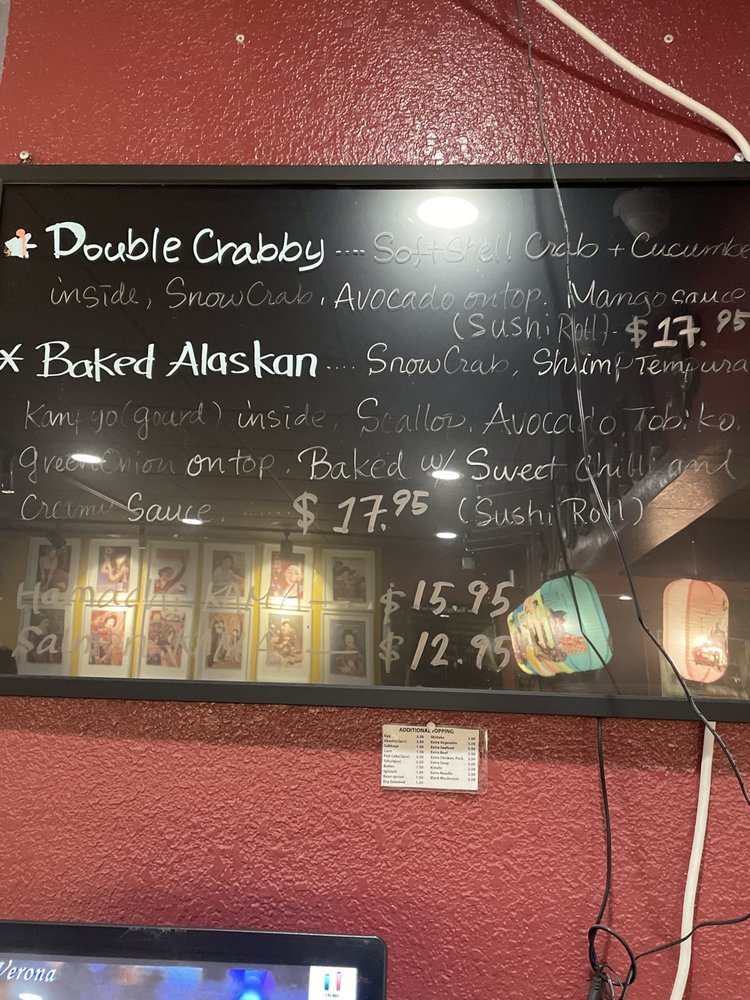 * Double Crabby .... Soft Shell Crab + Cucumbe
inside, Snow Crab, Avocado on top. Mango sauce
(Sushi Roll)- $17.95
* Baked Alaskan .... Snow Crab, Shrimp Tempura
Kampyo (gourd) inside, Scallop, Avocado Tobiko,
Green Onion on top. Baked w/ Sweet Chili and
Creamy Sauce ..... $17.95 (Sushi Roll)
Hamachi KAMA — $15.95
Salmon KAMA — $12.95
ADDITIONAL TOPPING
Verona